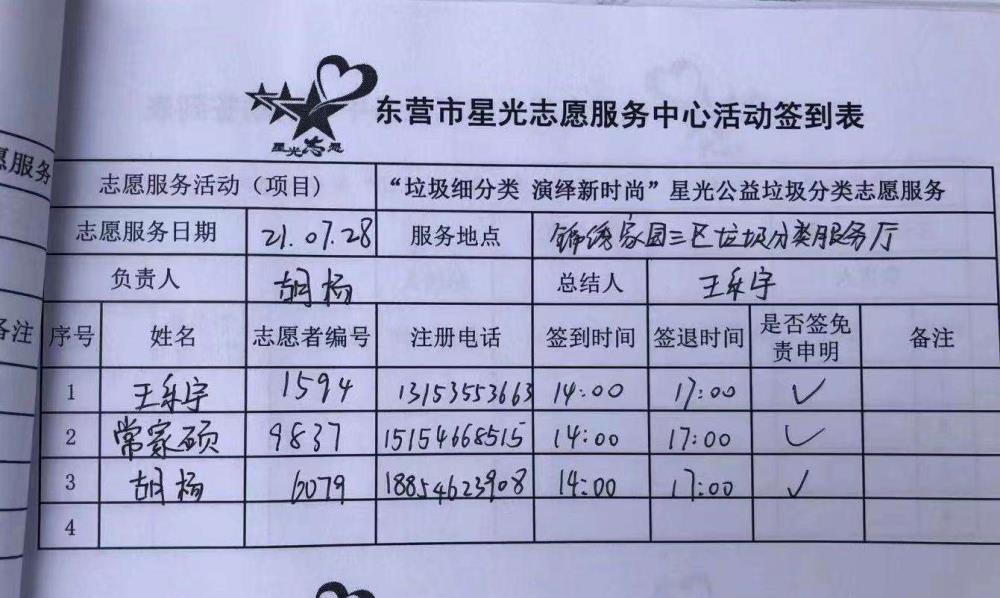 星光志愿
东营市星光志愿服务中心活动签到表
愿服务
备注
志愿服务活动（项目） “垃圾细分类 演绎新时尚”星光公益垃圾分类志愿服务
志愿服务日期 21.07.28 服务地点 锦绣家园三区垃圾分类服务厅
负责人 胡杨 总结人 王乐宇
序号 姓名 志愿者编号 注册电话 签到时间 签退时间 是否签免责申明 备注
1 王乐宇 1594 13153553663 14:00 17:00 ✓
2 常家硕 9837 15154668515 14:00 17:00 ✓
3 胡杨 6079 18854623908 14:00 17:00 ✓
4